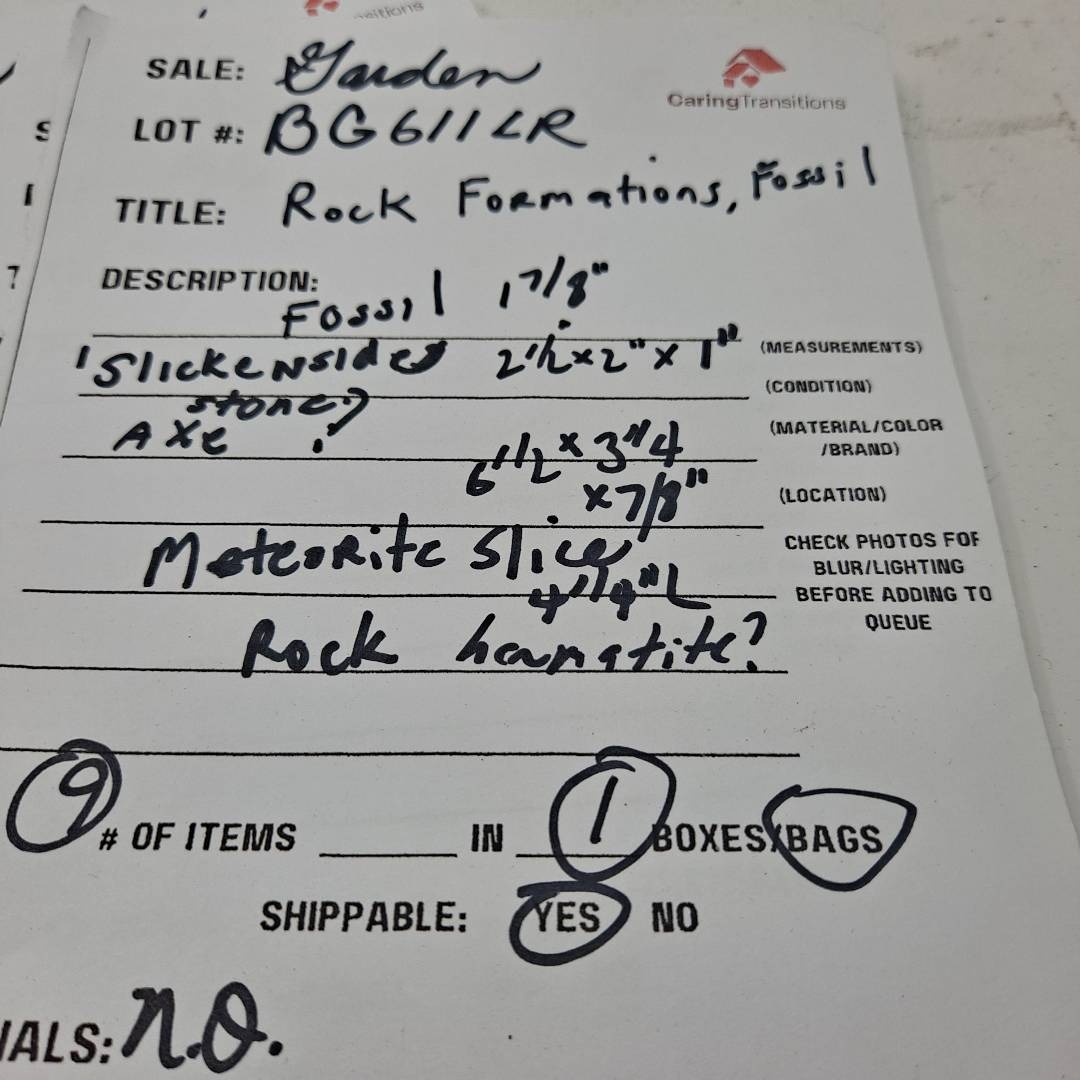 SALE: Garden
CaringTransitions
LOT #: BG611LR
TITLE: Rock Formations, Fossil
DESCRIPTION:
Fossil 1 7/8"
'Slickensides 2 1/2 x 2" x 1" (MEASUREMENTS)
(CONDITION)
stone?
AXe 6 1/2 x 3 1/4 (MATERIAL/COLOR
/BRAND)
x 7/8" (LOCATION)
Meteorite Slice CHECK PHOTOS FOR
BLUR/LIGHTING
4 1/4" L BEFORE ADDING TO
Rock hematite? QUEUE
9 # OF ITEMS IN 1 BOXES/BAGS
SHIPPABLE: YES NO
IALS: N.O.